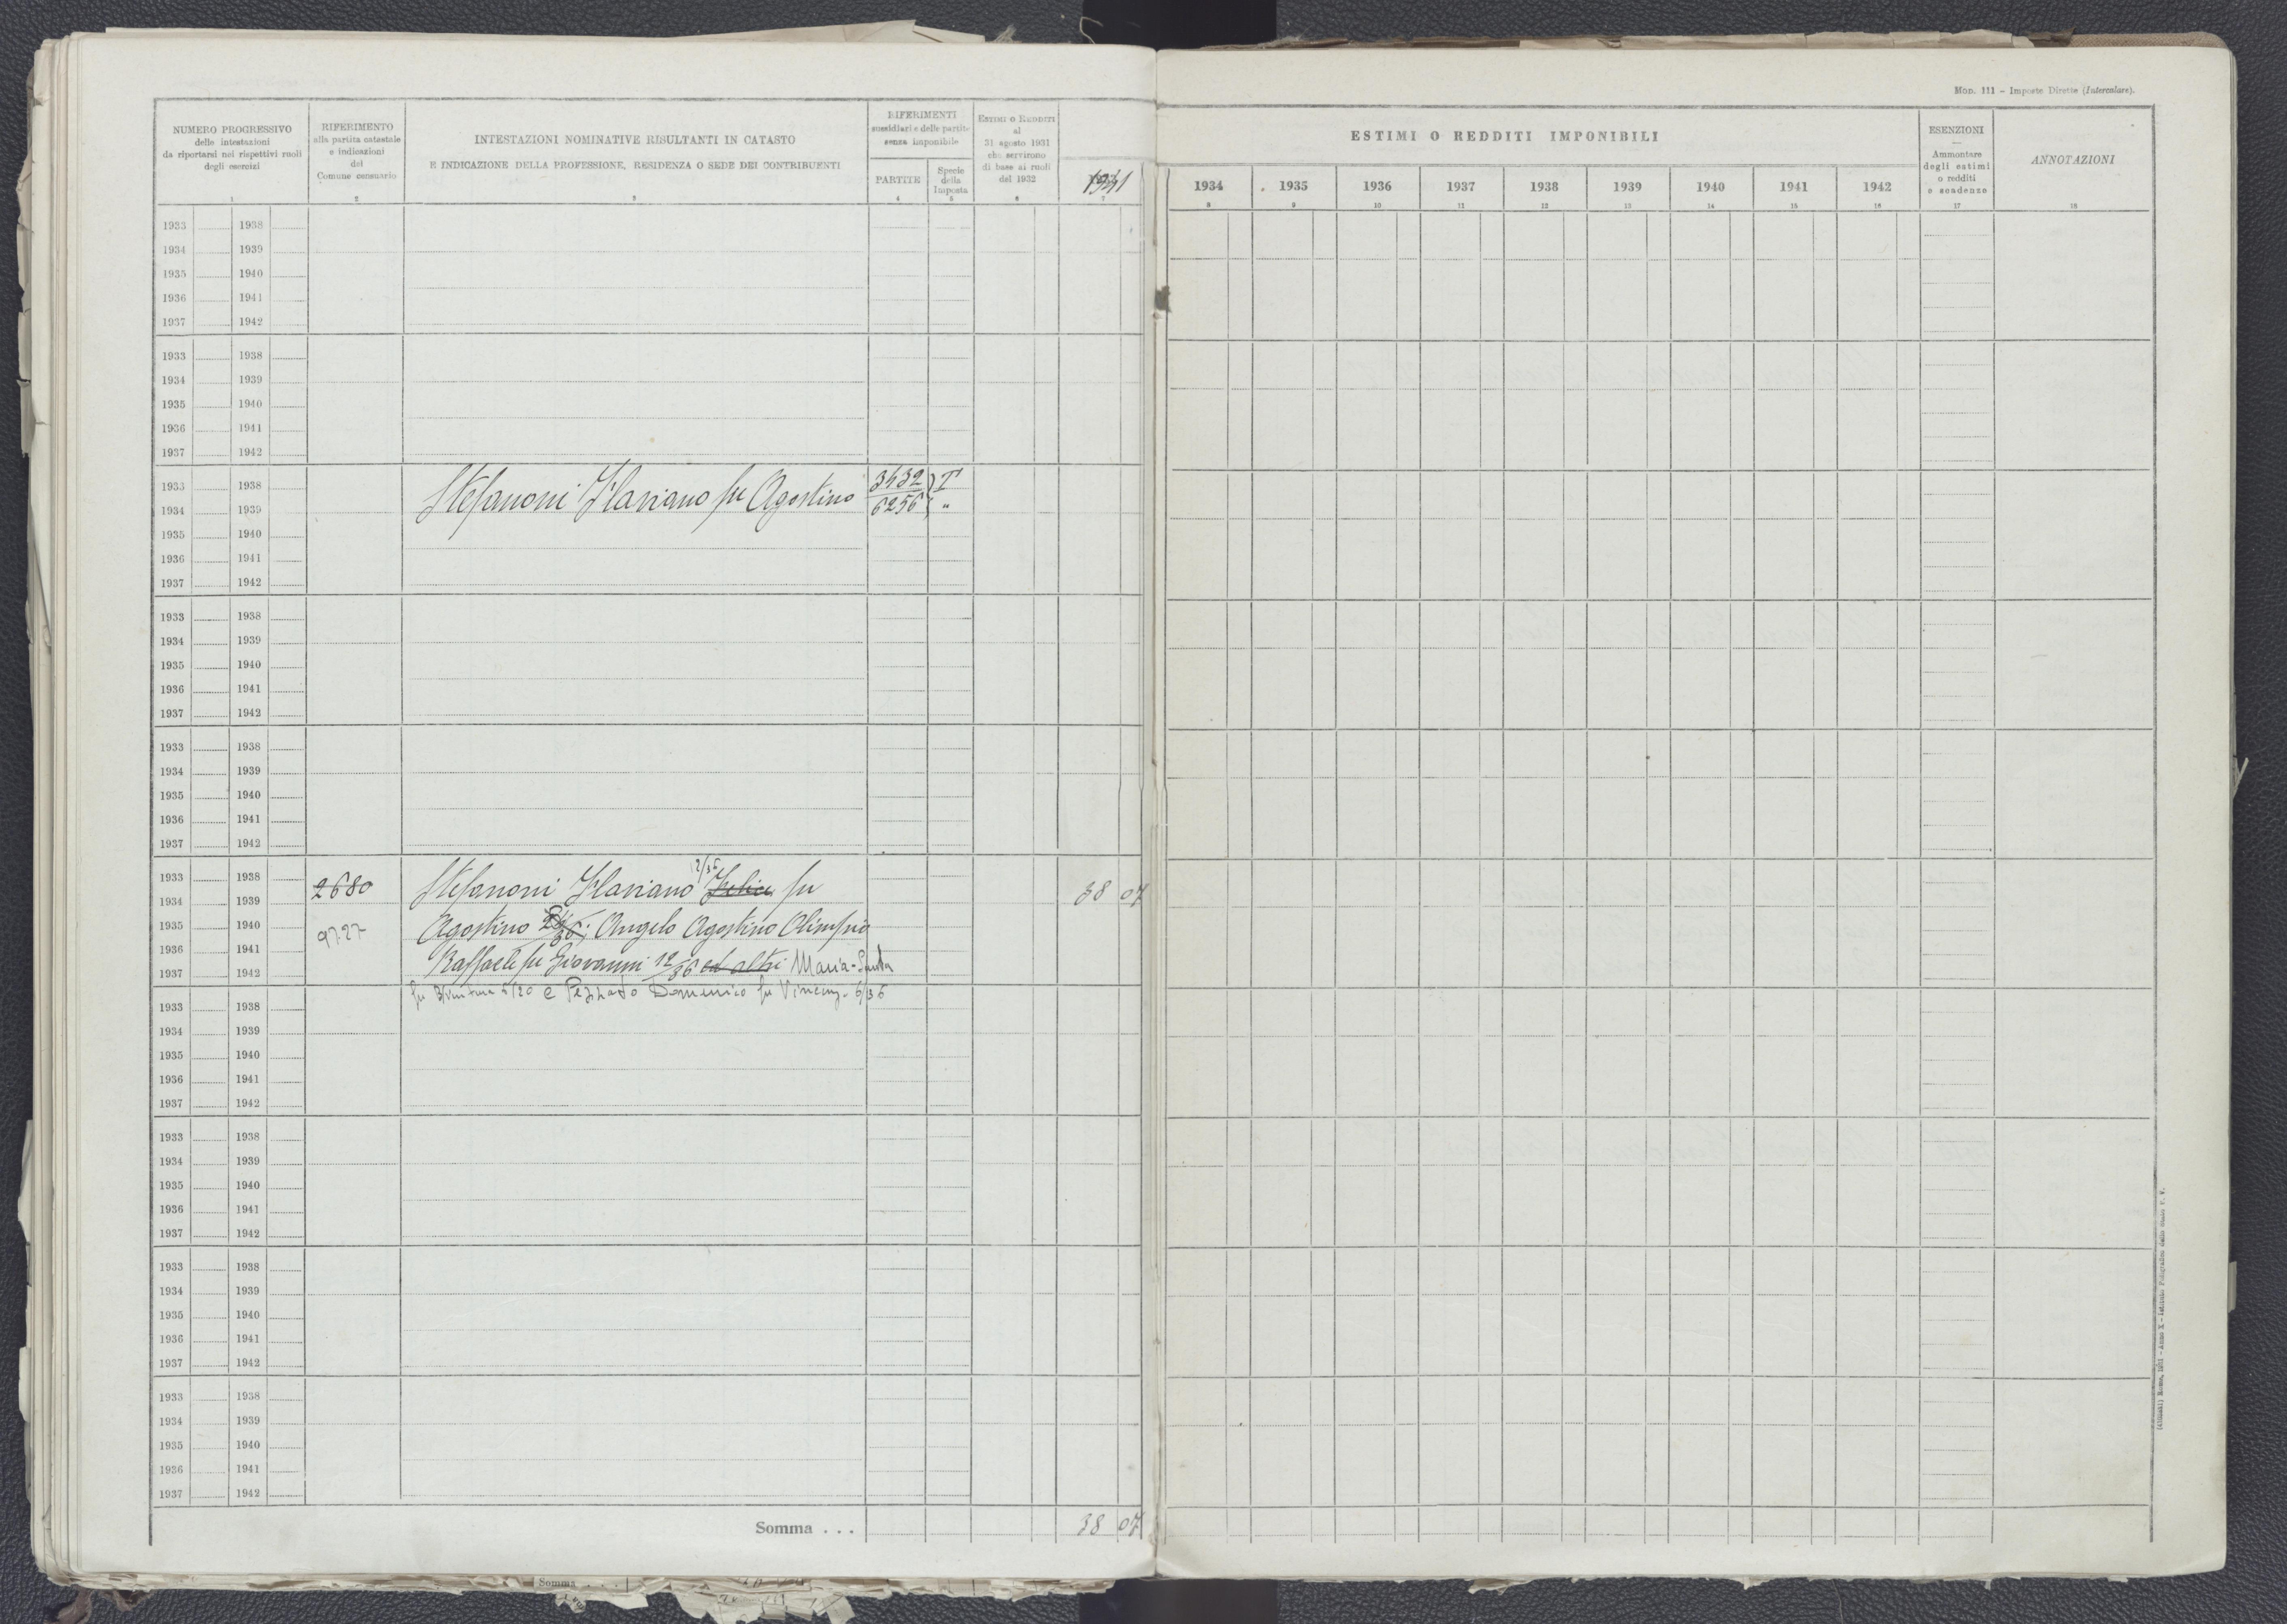 MOD. 111 - Imposte Dirette (Intercalare).
NUMERO PROGRESSIVO
delle intestazioni
da riportarsi nei rispettivi ruoli
degli esercizi
1
RIFERIMENTO
alla partita catastale
e indicazioni
del
Comune censuario
2
INTESTAZIONI NOMINATIVE RISULTANTI IN CATASTO
E INDICAZIONE DELLA PROFESSIONE, RESIDENZA O SEDE DEI CONTRIBUENTI
3
RIFERIMENTI
sussidiari e delle partite
senza imponibile
PARTITE
4
Specie
della
Imposta
5
ESTIMI O REDDITI
al
31 agosto 1931
che servirono
di base ai ruoli
del 1932
6
1941
7
ESTIMI O REDDITI IMPONIBILI
1934 1935 1936 1937 1938 1939 1940 1941 1942
8 9 10 11 12 13 14 15 16
ESENZIONI
Ammontare
degli estimi
o redditi
e scadenze
17
ANNOTAZIONI
18
1933 1938
1934 1939
1935 1940
1936 1941
1937 1942
1933 1938
1934 1939
1935 1940
1936 1941
1937 1942
1933 1938
Stefanoni Flaviano fu Agostino 3432 T
1934 1939 6256 "
1935 1940
1936 1941
1937 1942
1933 1938
1934 1939
1935 1940
1936 1941
1937 1942
1933 1938
1934 1939
1935 1940
1936 1941
1937 1942
1933 1938 2680 Stefanoni Flaviano Felice fu 38 07
1934 1939
1935 1940 9727 Agostino Angelo Agostino Olimpio
1936 1941
1937 1942 Raffaele fu Giovanni 12/36 ed altri Maria-Santa
fu 5/20 e Domenico fu 6/36
1933 1938
1934 1939
1935 1940
1936 1941
1937 1942
1933 1938
1934 1939
1935 1940
1936 1941
1937 1942
1933 1938
1934 1939
1935 1940
1936 1941
1937 1942
1933 1938
1934 1939
1935 1940
1936 1941
1937 1942
Somma . . . 38 07
Somma . . .